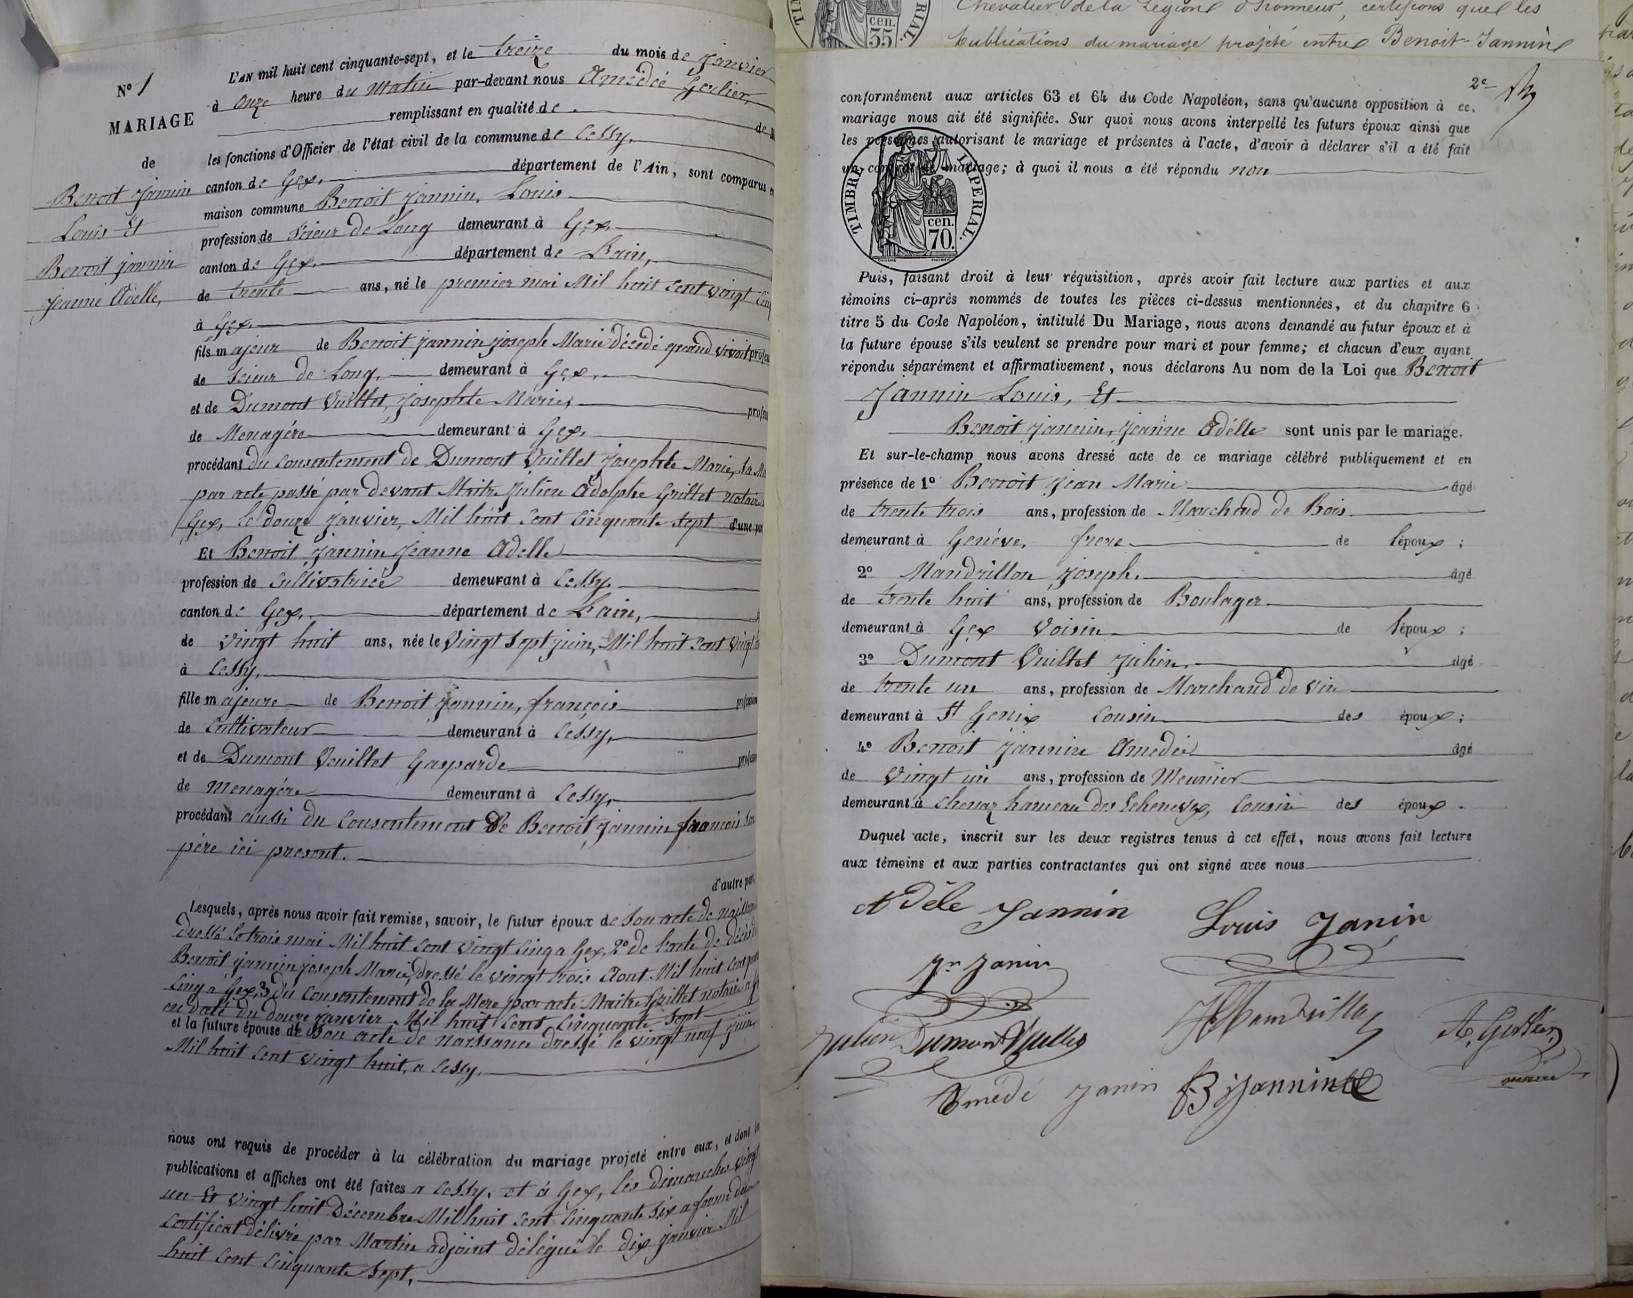 Chevalier de la Légion d'honneur, certifions que les
publications du mariage projeté entre Benoit-Jannin
N° 1
MARIAGE
de
Benoit Jannin
Louis Et
Benoit Jannin
Jeanne Adelle,
L'AN mil huit cent cinquante-sept, et le treize du mois de Janvier
à onze heure du Matin par-devant nous Amédée Gerlier,
remplissant en qualité de
les fonctions d'Officier de l'état civil de la commune de Cessy,
canton de Gex, département de l'Ain, sont comparus en
maison commune Benoit Jannin, Louis
profession de Scieur de Long demeurant à Gex
canton de Gex, département de L'ain,
de trente ans, né le premier mai Mil huit Cent vingt Cinq
à Gex
fils majeur de Benoit Jannin Joseph Marie décédé quand vivait profes
de Scieur de Long, demeurant à Gex,
et de Dumont Vuillet, Josephte Marie, profes
de Menagére demeurant à Gex,
procédant du Consentement de Dumont Vuillet Josephte Marie, Sa Mè
par acte passé par devant Maitre Julien Adolphe Grillet notaire
Gex, le douze Janvier, Mil huit Cent Cinquante Sept d'une par
Et Benoit Jannin Jeanne Adelle
profession de Cultivatrice demeurant à Cessy
canton de Gex, département de L'ain,
de vingt huit ans, née le Vingt Sept juin, Mil huit Cent Vingt
à Cessy,
fille majeure de Benoit Jannin, françois profession
de Cultivateur demeurant à Cessy,
et de Dumont Vouillet Gasparde profes
de Menagére demeurant à Cessy,
procédant aussi du Consentement de Benoit Jannin francois Son
pére ici present.
d'autre part,
Lesquels, après nous avoir fait remise, savoir, le futur époux de Son acte de naissan
dressé le trois mai Mil huit Cent vingt Cinq a Gex, 2° de l'acte de décés de
Benoit Jannin Joseph Marie, dressé le vingt trois Aout Mil huit Cent
Cinq a Gex, 3° du Consentement de la Mere par acte Maitre Grillet notaire a
en date du douze Janvier Mil huit Cent Cinquante Sept
et la future épouse de Son acte de naissance dressé le vingt neuf juin
Mil huit Cent vingt huit, a Cessy,
nous ont requis de procéder à la célébration du mariage projeté entre eux, et dont les
publications et affiches ont été faites a Cessy, et à Gex, les dimanches vingt
un Et vingt huit Décembre Mil huit Cent Cinquante Six a forme du
Certificat délivré par Martin adjoint délégué le dix janvier Mil
huit Cent Cinquante Sept,
2e
conformément aux articles 63 et 64 du Code Napoléon, sans qu'aucune opposition à ce
mariage nous ait été signifiée. Sur quoi nous avons interpellé les futurs époux ainsi que
les personnes autorisant le mariage et présentes à l'acte, d'avoir à déclarer s'il a été fait
un contrat de mariage; à quoi il nous a été répondu non
TIMBRE IMPERIAL.
cen.
70.
Puis, faisant droit à leur réquisition, après avoir fait lecture aux parties et aux
témoins ci-après nommés de toutes les pièces ci-dessus mentionnées, et du chapitre 6
titre 5 du Code Napoléon, intitulé Du Mariage, nous avons demandé au futur époux et à
la future épouse s'ils veulent se prendre pour mari et pour femme; et chacun d'eux ayant
répondu séparément et affirmativement, nous déclarons Au nom de la Loi que Benoit
Jannin Louis, Et
Benoit Jannin, Jeanne Adélle sont unis par le mariage.
Et sur-le-champ nous avons dressé acte de ce mariage célébré publiquement et en
présence de 1° Benoit Jean Marie âgé
de trente trois ans, profession de Marchand de Bois
demeurant à Genéve, frere de l'époux;
2° Mandrillon Joseph, âgé
de trente huit ans, profession de Boulager
demeurant à Gex Voisin de l'époux;
3° Dumont Vuillet Julien, âgé
de trente un ans, profession de Marchand de vin
demeurant à St Genix Cousin des époux;
4° Benoit Jannin Amedée âgé
de Vingt un ans, profession de Meunier
demeurant à Chenaz hameau des Echenevex, Cousin des époux.
Duquel acte, inscrit sur les deux registres tenus à cet effet, nous avons fait lecture
aux témoins et aux parties contractantes qui ont signé avec nous
Adèle Jannin Louis Janin
Jn Janin
Julien Dumont Vuillet JMandrillon A. Gerlier,
maire
Amedé Janin BJannin